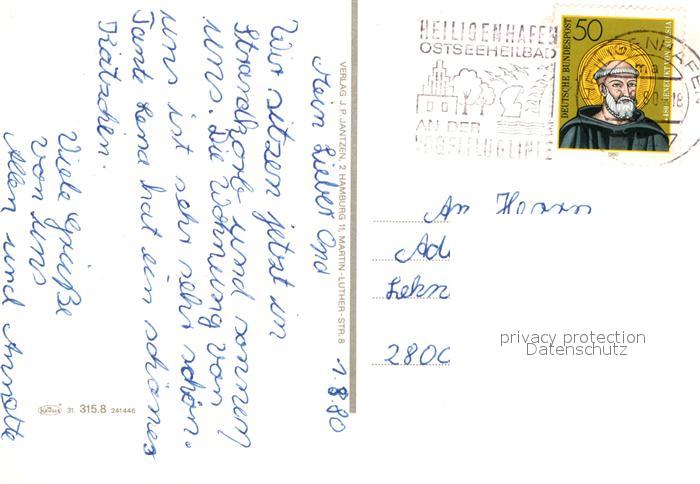 Mein Lieber Opa
1.8.80
Wir sitzen jetzt im
Strandkorb und sonnen
uns. Die Wohnung von
uns ist sehr sehr schön.
Tante Lena hat ein schönes
Kätzchen.
Viele Grüße
von uns
Allen und Annette
VERLAG J. P. JANTZEN, 2 HAMBURG 11, MARTIN-LUTHER-STR. 8
KRÜGER 31. 315.8 241446
HEILIGENHAFEN
OSTSEEHEILBAD
AN DER
VOGELFLUGLINIE
50
DEUTSCHE BUNDESPOST
BENEDIKT VON NURSIA
1980
An Herrn
2800
privacy protection
Datenschutz